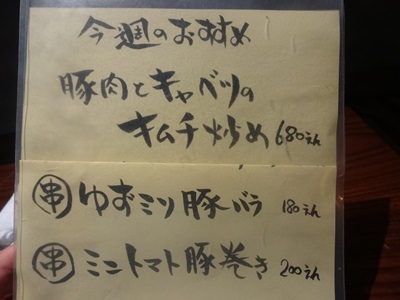 今週のおすすめ
豚肉とキャベツの
キムチ炒め 680えん
串 ゆずミソ豚バラ 180えん
串 ミニトマト豚巻き 200えん